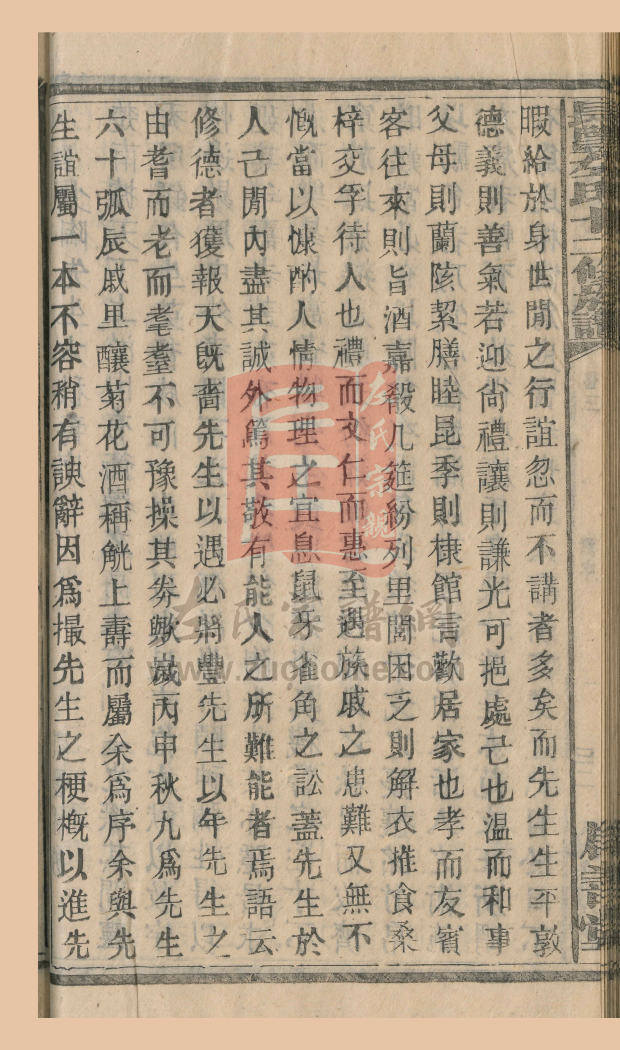 暇給於身世閒之行誼忽而不講者多矣而先生生平敦
德義則善氣若迎尙禮讓則謙光可挹處己也溫而和事
父母則蘭陔絜膳睦昆季則棣館言歡居家也孝而友賓
客往來則旨酒嘉殽几筵紛列里閭困乏則解衣推食桑
梓交孚待人也禮而文仁而惠至遇族戚之患難又無不
慨當以慷酌人情物理之宜息鼠牙雀角之訟蓋先生於
人己閒內盡其誠外篤其敬有能人之所難能者焉語云
修德者獲報天旣嗇先生以遇必將豐先生以年先生之
由耆而老而耄耋不可豫操其券歟歲丙申秋九爲先生
六十弧辰戚里釀菊花酒稱觥上壽而屬余爲序余與先
生誼屬一本不容稍有諛辭因爲撮先生之梗槪以進先
左氏宗親
左氏家譜網
www.zuojiome.com